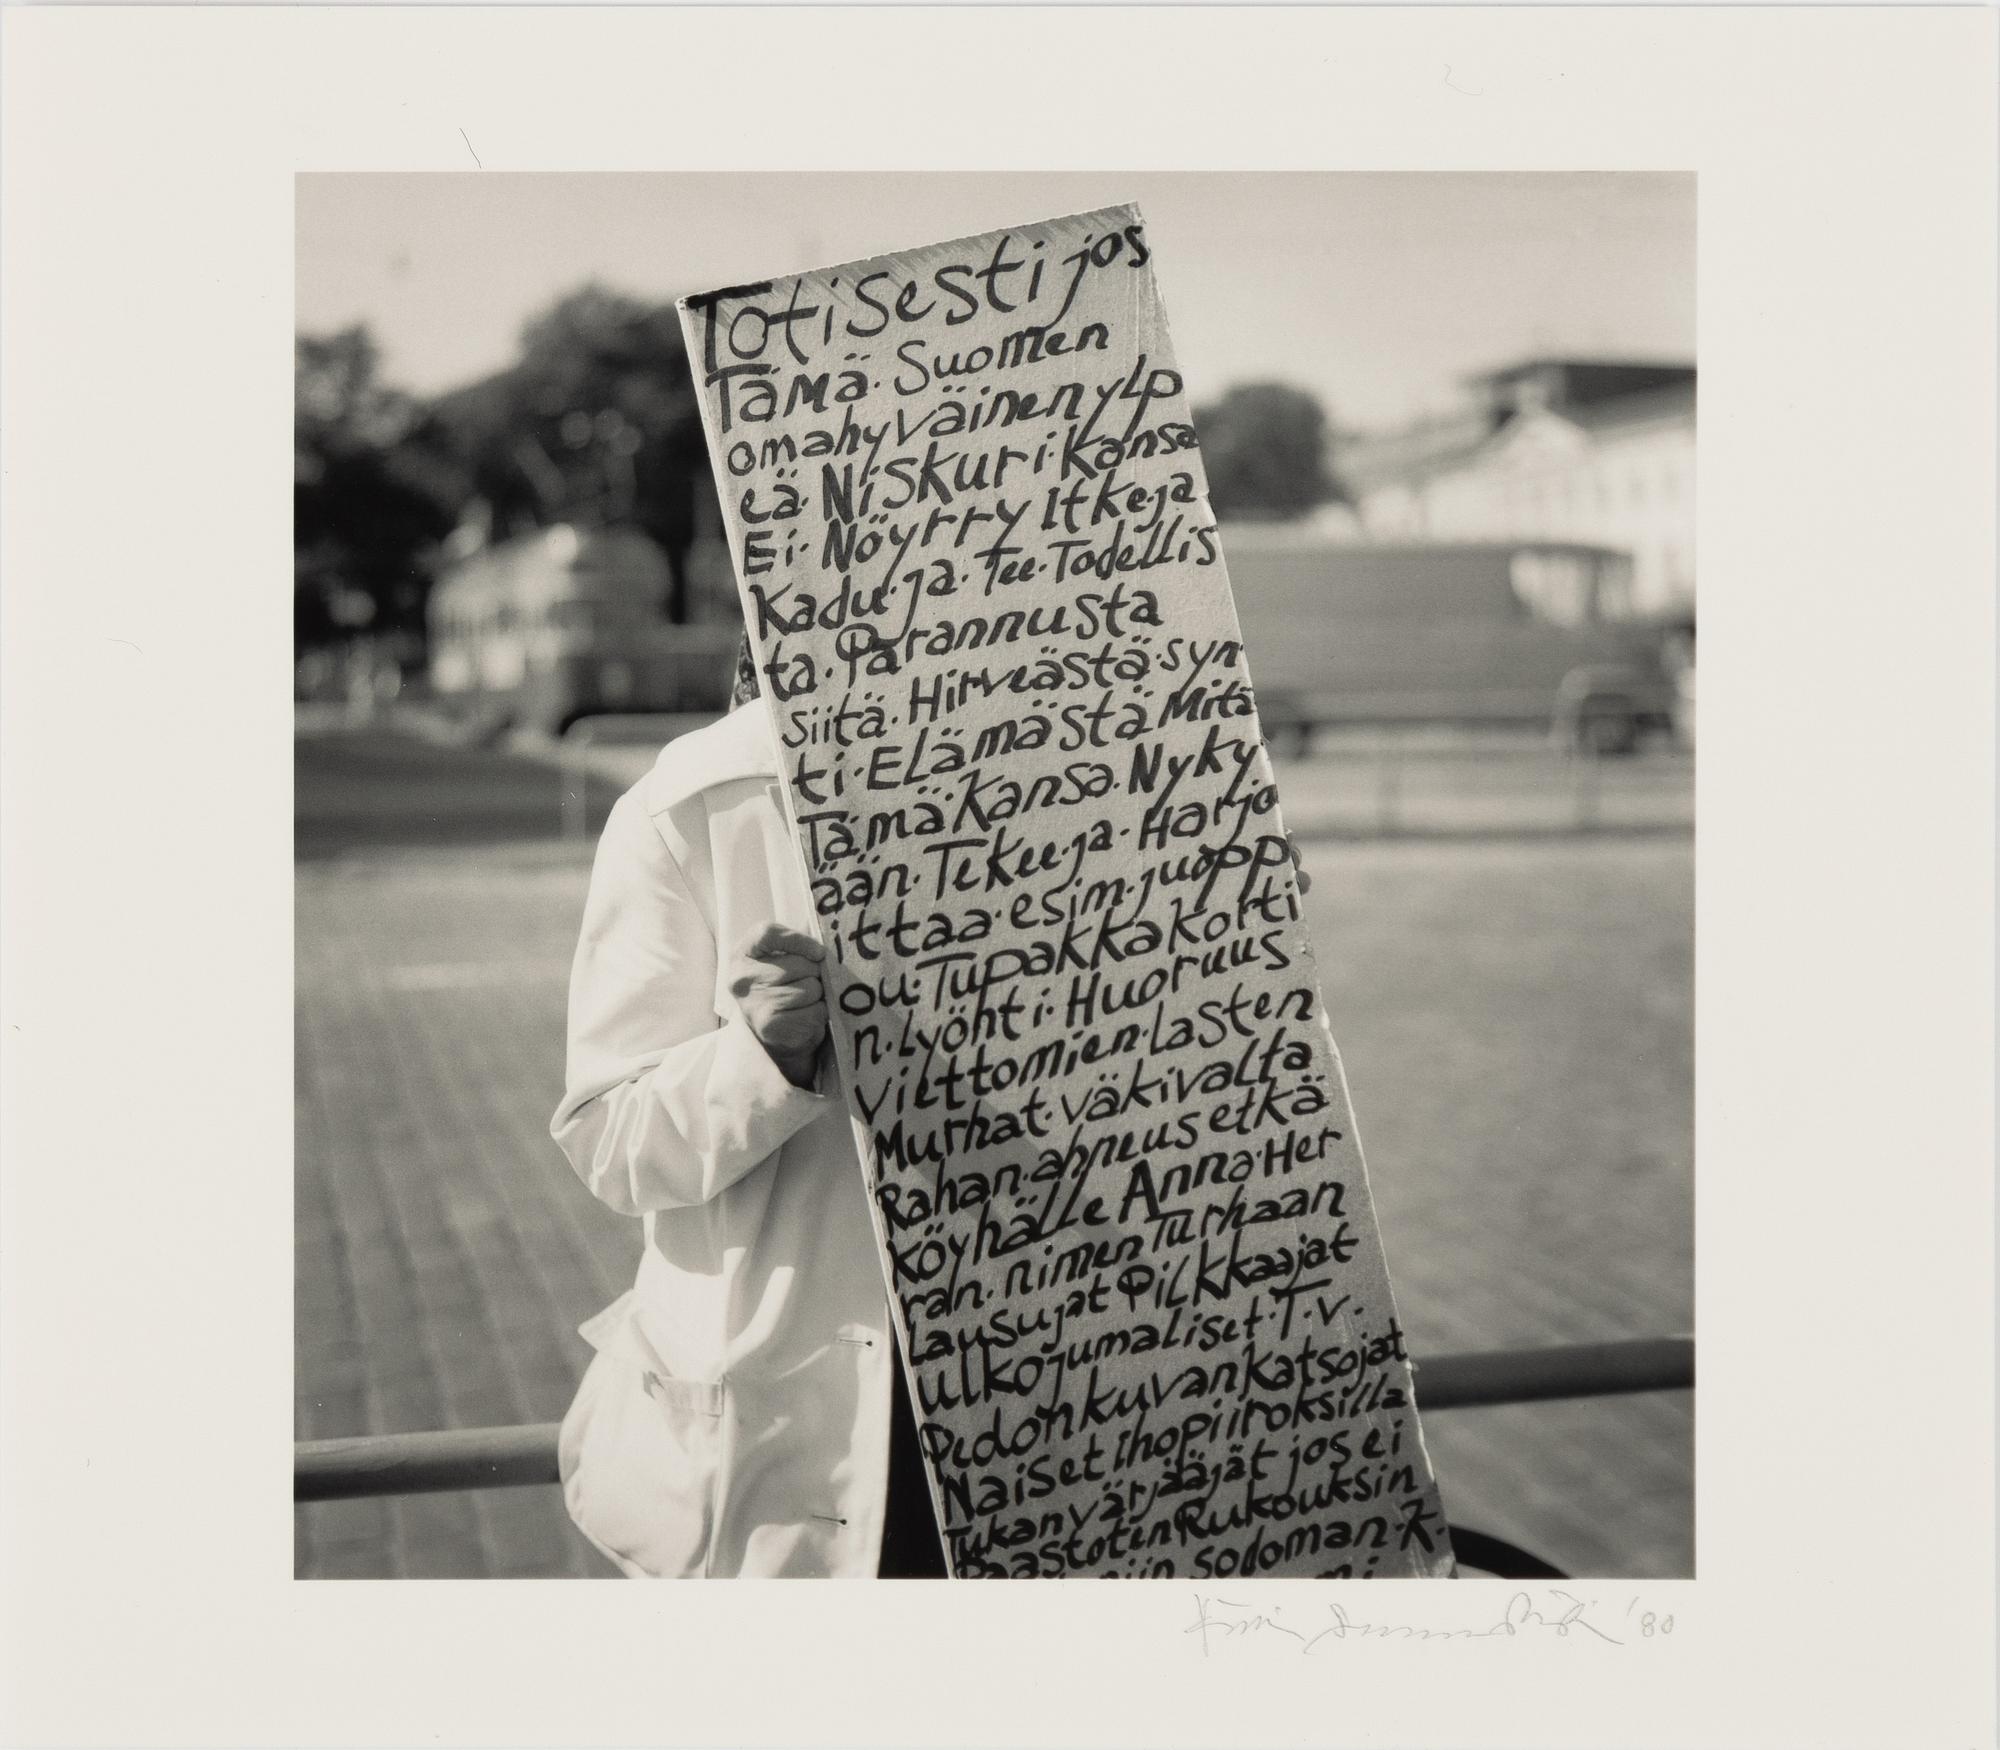 Totisesti jos
Tämä. Suomen
omahyväinen ylp
eä. Niskuri. kansa
Ei. Nöyrry Itke. ja
Kadu. ja. Tee. Todellis
ta. Parannusta
siitä. Hirveästä. syn
ti. Elämästä Mitä
Tämä. Kansa. Nyky
ään. Tekee. ja. Harjo
ittaa. esim. juopp
ou. Tupakka korti
n. Lyöhti. Huoruus
viettomien. lasten
Murhat. väkivalta
Rahan. ahneus etkä
köyhälle Anna. Her
ran. nimen Turhaan
Lausujat Pilkkaajat
ulkojumaliset. T.v.
Pedon kuvan katsojat
Naiset Ihopiiroksilla
Tukanvärjääjät jos ei
Paastoten Rukouksin
niin sodoman. K.
'80